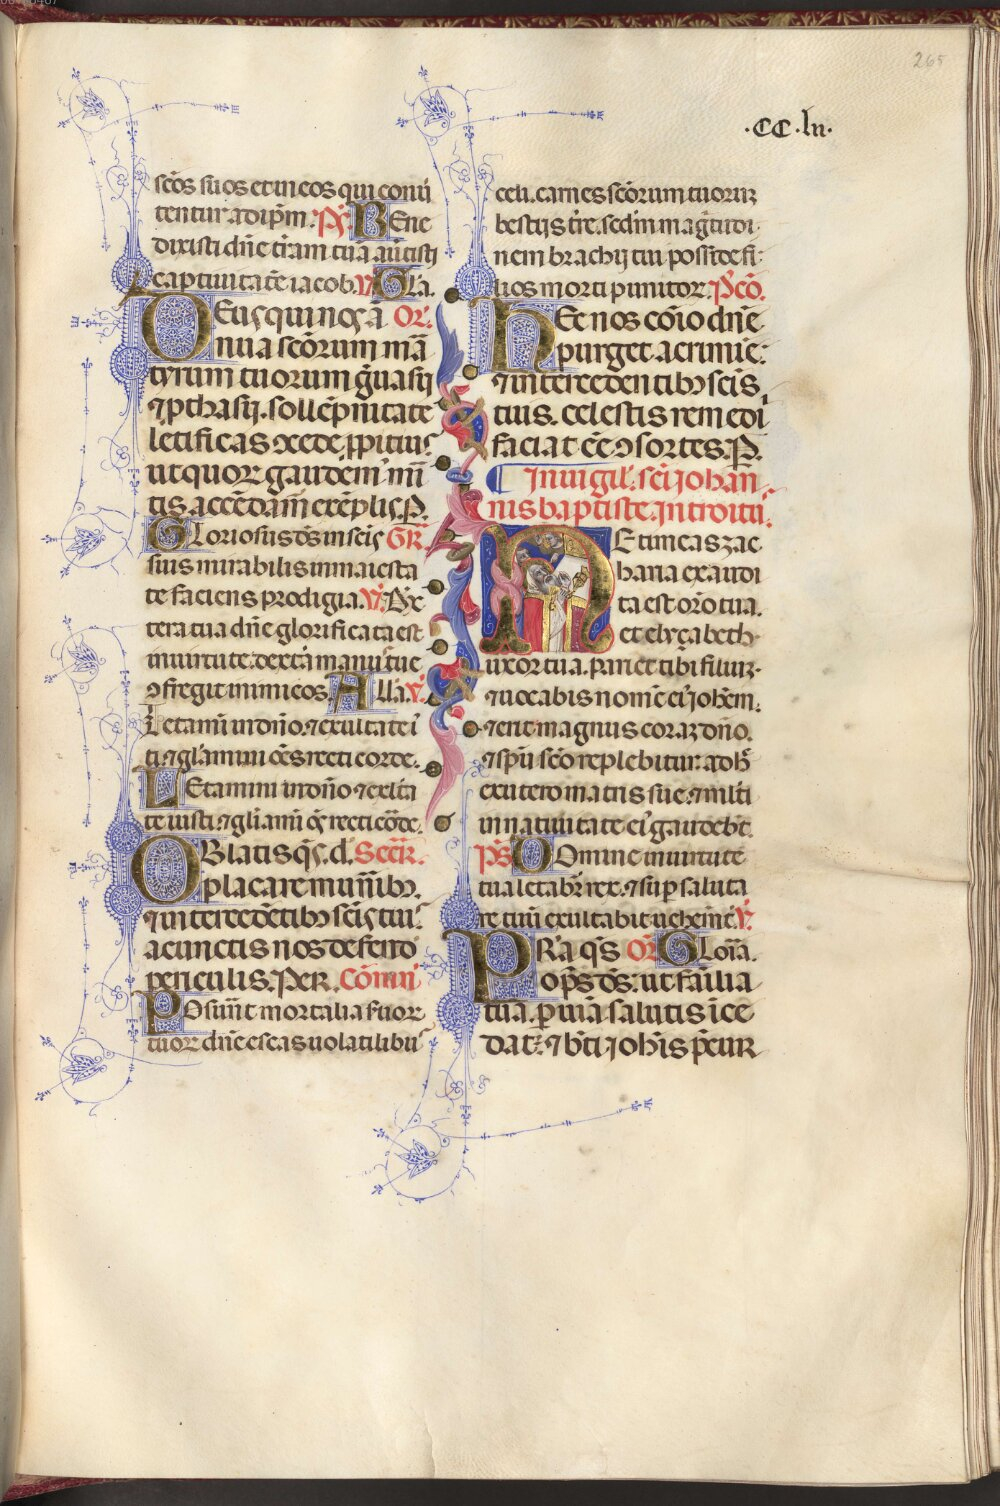 265
·CC·lii·
scōs suos et in eos qui conũ
tentur ad ip̄m. p̄s. BEne
dixisti dñe t̄ram tuā auertisti
captiuitatē iacob. V̄. Gl̄a.
DEus qui nos ā Or̄.
nnua scōrum mã
tyrum tuorum gͥuasii
⁊ ꝓthasii. sollēpnitate
letificas ↄcede ꝓpitiuˀ
ut quoꝝ gaudemˀ mĩ
tis accēdam̄ exēplis. P.
GLoriosus d̄s in scīs GR̄
suis mirabilis in maiesta
te faciens prodigia. V̄. Dex
tera tua dñe glorificata est
in uirtute. dext̄a manuˢ tue
ↄfregit inimicos. All̄a. V̄.
Letamĩ in dño ⁊ exultate i
ti ⁊ gl̄amini oēs recti corde.
LEtamini in dño ⁊ exl̄ta
te iusti ⁊ gl̄iamĩ oēs recti corde.
OBlatis q̄s. d. Secr̄.
placare munīibꝫ.
⁊ intercedētibꝫ scīs tuiˢ
a cunctis nos defende
periculis. Per. Cōmũ
POsuert̄ mortalia s̄uoꝝ
tuoꝝ dñe escas uolatilibuˢ
celi. carnes scōrum tuoꝝ
bestijs t̄re. sedm̄ magͥtudi
nem brachij tui posside fi
lios morti punitoꝝ. P̄cō.
HEc nos cōio dñe
purget a crimīe:
⁊ intercedentibꝫ scīs
tuis. celestis remedi
faciat eē ↄsortes. P.
In uigil̄. sc̄i johan
nis baptiste. Introitũ.
NE timeas zac
haria exaudi
ta est or̄o tua.
et elyçabeth
uxor tua. pariet tibi filiuꝫ.
⁊ uocabis nomē eiˀ joh̄em.
⁊ erit magnus coraꝫ dño.
⁊ sp̄u scō replebitur adhͨ
ex utero matris sue. ⁊ multi
in natiuitate eiˀ gaudebt̄.
p̄s DOmine in uirtute
tua letabr̄ rex. ⁊ sup̄ saluta
re tuũ exultabit uehemēt̄. V̄.
PRa q̄s Or̄ GLoria.
op̄s d̄s. ut familia
tua. ꝑ uiā salutis ice
dat. ⁊ bt̄i joh̄is p̄cur